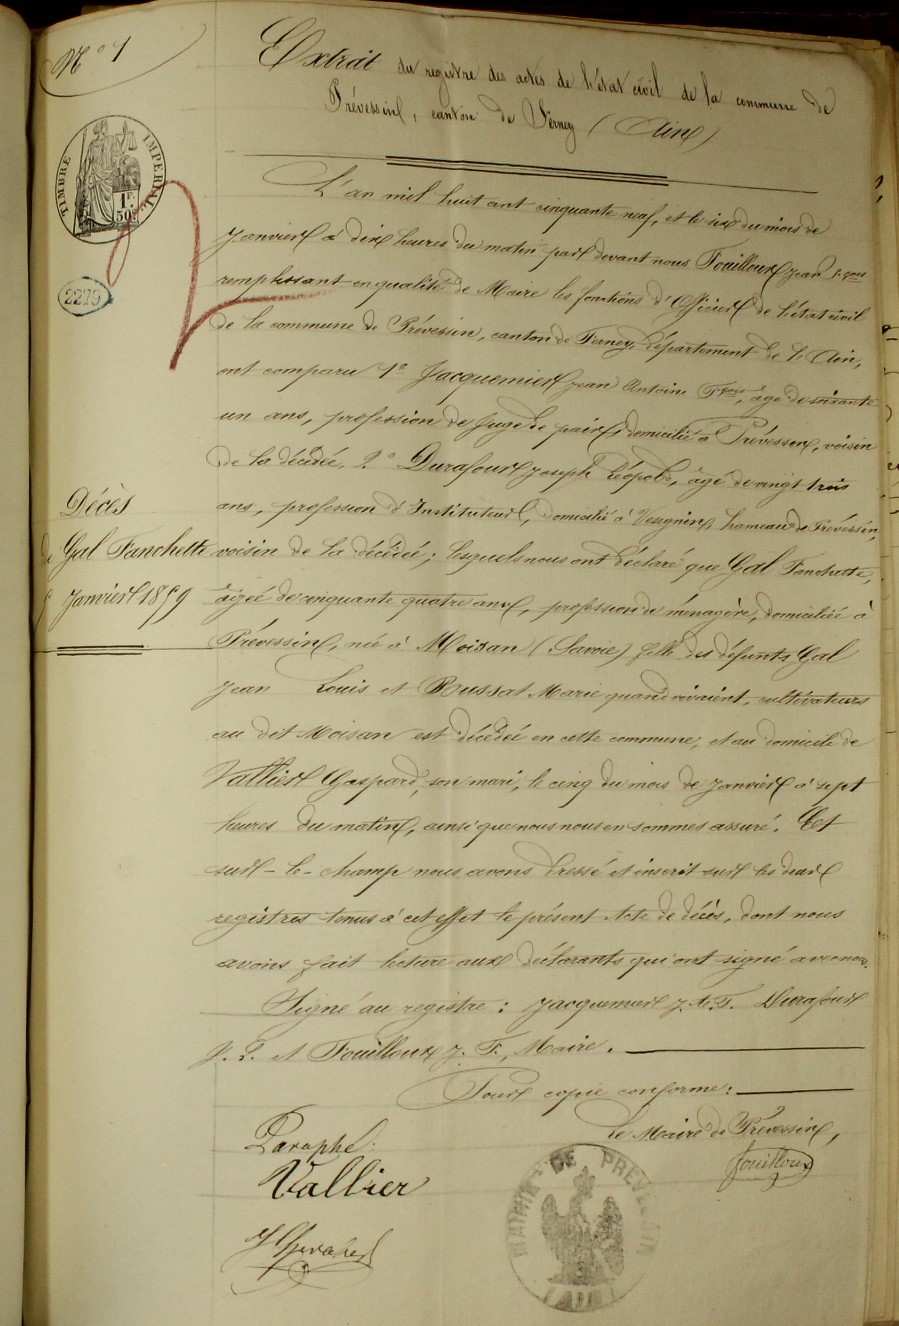 N° 1
Extrait du registre des actes de l'état civil de la commune de
Prévessin, canton de Ferney (Ain)
TIMBRE IMPERIAL
1F.
50c
2279
L'an mil huit cent cinquante neuf, et le six du mois de
Janvier à dix heures du matin par devant nous Fouilloux Jean Fçois
remplissant en qualité de Maire les fonctions d'Officier de l'état civil
de la commune de Prévessin, canton de Ferney, département de l'Ain,
ont comparu 1° Jacquemier Jean Antoine Fçois, âgé de soixante
un ans, profession de Juge de paix, domicilié à Prévessin, voisin
de la décédée, 2° Durafour Joseph Léopold, âgé de vingt trois
ans, profession d'Instituteur, domicilié à Vesegnin hameau de Prévessin,
voisin de la décédée; lesquels nous ont déclaré que Gal Fanchette,
âgée de cinquante quatre ans, profession de ménagère, domiciliée à
Prévessin, née à Moisan (Savoie) fille des défunts Gal
Jean Louis et Russat Marie quand vivaient, cultivateurs
au dit Moisan est décédée en cette commune, et au domicile de
Vallier Gaspard, son mari, le cinq du mois de Janvier à sept
heures du matin, ainsi que nous nous en sommes assuré. Et
sur-le-champ nous avons dressé et inscrit sur les deux
registres tenus à cet effet le présent Acte de décès, dont nous
avons fait lecture aux déclarants qui ont signé avec nous.
Signé au registre: Jacquemier J. A. F. Durafour
J. L. et Fouilloux J. F., Maire.
Pour copie conforme:
Le Maire de Prévessin,
Fouilloux
Décès
de Gal Fanchette
5 Janvier 1859
Paraphé:
Vallier
MAIRIE DE PREVESSIN
(AIN)